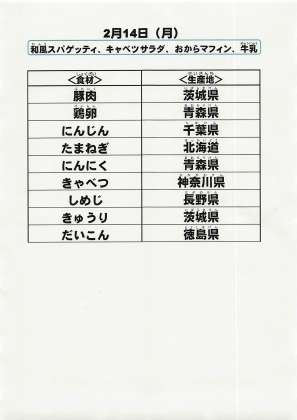 2月14日（月）
和風スパゲッティ、キャベツサラダ、おからマフィン、牛乳
＜食材＞ ＜生産地＞
豚肉 茨城県
鶏卵 青森県
にんじん 千葉県
たまねぎ 北海道
にんにく 青森県
きゃべつ 神奈川県
しめじ 長野県
きゅうり 茨城県
だいこん 徳島県